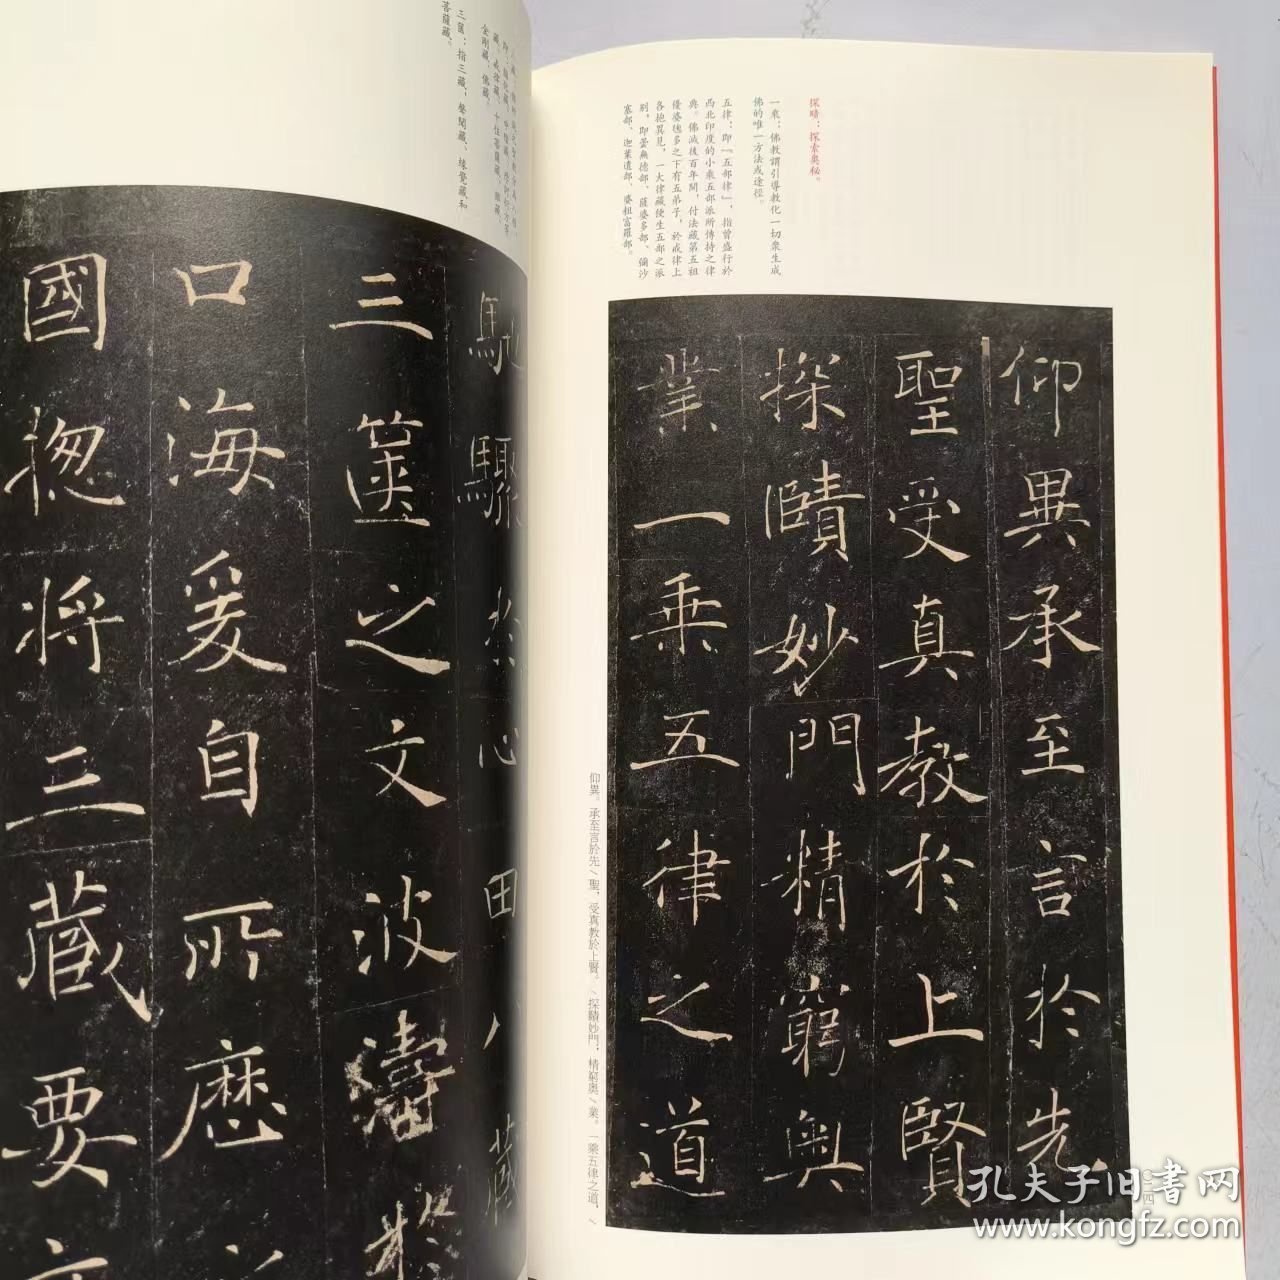 探賾：探索奧秘。
一乘：佛教謂引導教化一切衆生成
佛的唯一方法或途徑。
五律：即『五部律』，指曾盛行於
西北印度的小乘五部派所傳持之律
典。佛滅後百年間，付法藏第五祖
優婆毱多之下有五弟子，於戒律上
各抱異見，一大律藏便生五部之派
别，即曇無德部、薩婆多部、彌沙
塞部、迦葉遺部、婆粗富羅部。
仰異承至言於先
聖受真教於上賢
探賾妙門精窮奧
業一乘五律之道
仰異。承至言於先／聖，受真教於上賢。／探賾妙門，精窮奧／業。一乘五律之道，／
藏、戒律藏、十住菩薩藏、雜藏、
金剛藏、佛藏。
三篋：指三藏；聲聞藏、緣覺藏和
菩薩藏。
馳驟於心田八藏
三篋之文波濤於
口海爰自所歷
國揔將三藏要文
孔夫子旧書网
www.kongfz.com